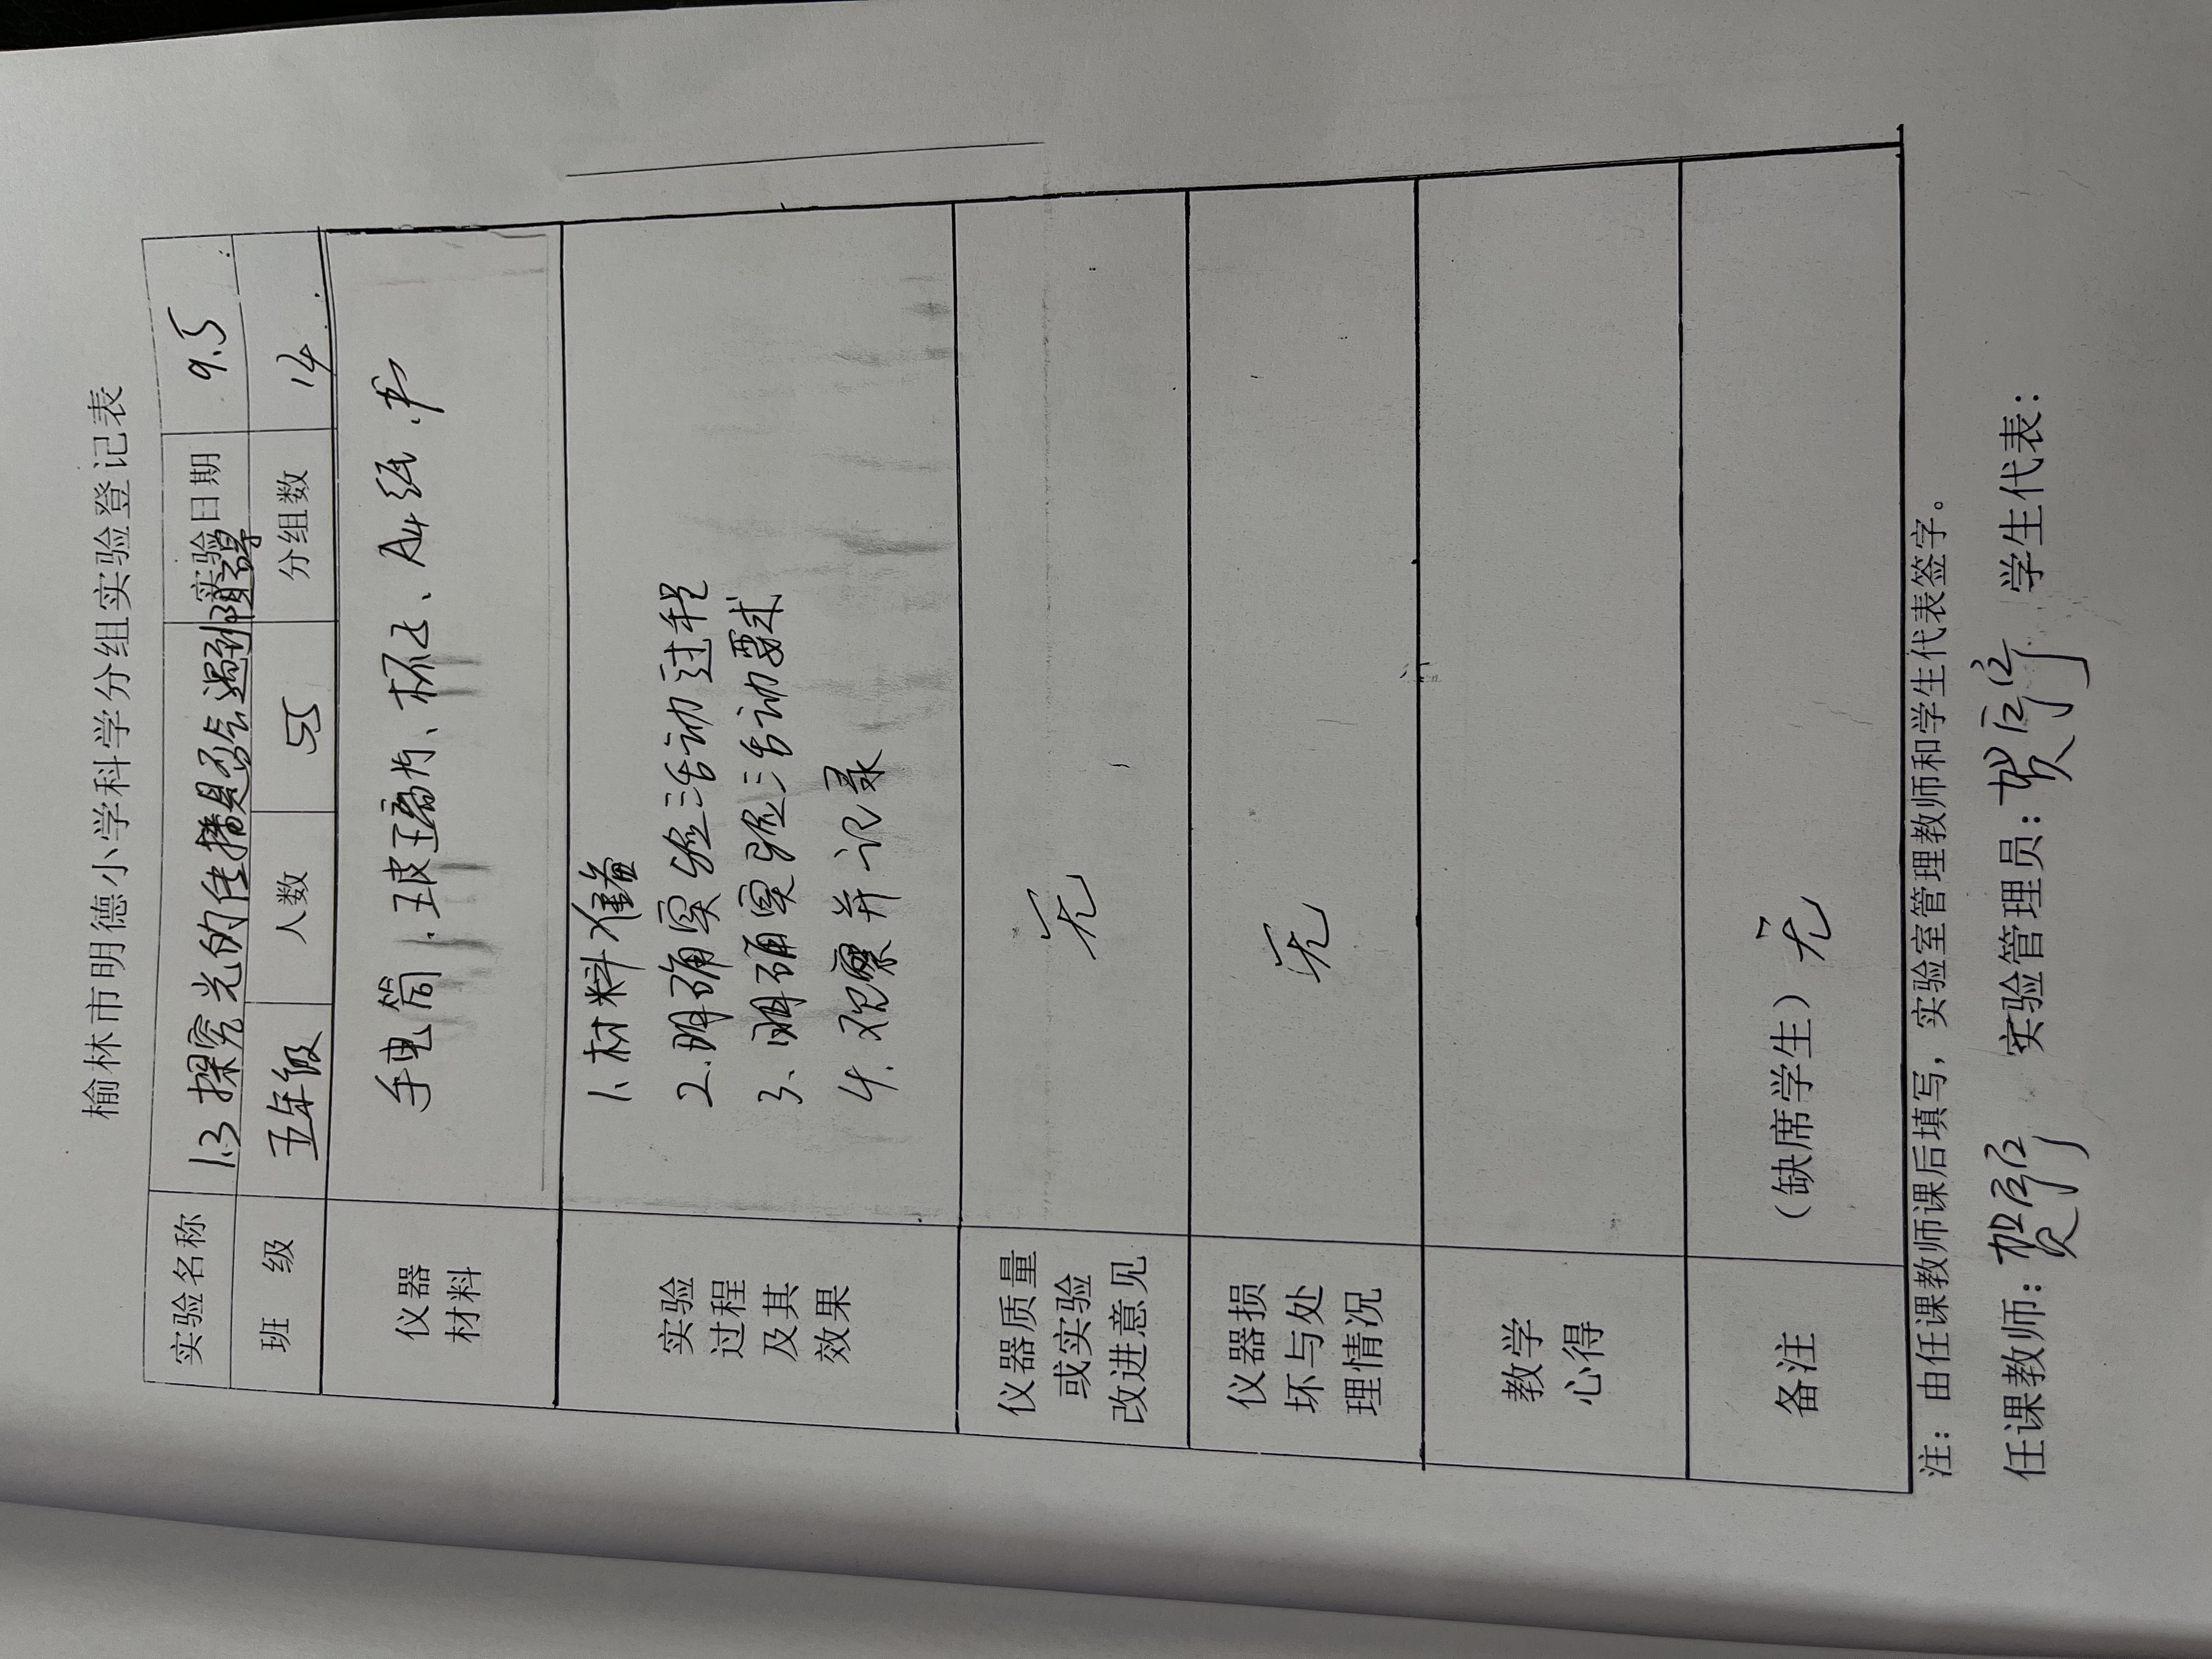 榆林市明德小学科学分组实验登记表
实验名称 1.3 探究光的传播是否会遇到阻碍 实验日期 9.5
班 级 五年级 人数 55 分组数 14
仪器材料 手电筒、玻璃片、杯子、A4纸、书
实验过程及其效果
1、材料准备
2、明确实验活动过程
3、明确实验活动要求
4、观察并记录
仪器质量或实验改进意见 无
仪器损坏与处理情况 无
教学心得
备注 (缺席学生) 无
注：由任课教师课后填写，实验室管理教师和学生代表签字。
任课教师：贺 实验管理员：贺 学生代表：